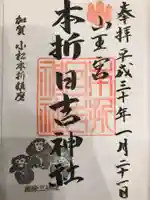 奉拝 平成三十年一月二十一日
山王宮
本折日吉神社
加賀 小松本折鎮座